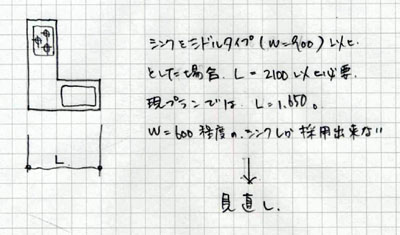 シンクをミドルタイプ(W=900)以上
とした場合、L=2100以上必要.
現プランでは L=1,650。
W=600程度の、シンクしか採用出来ない
↓
見直し.
L